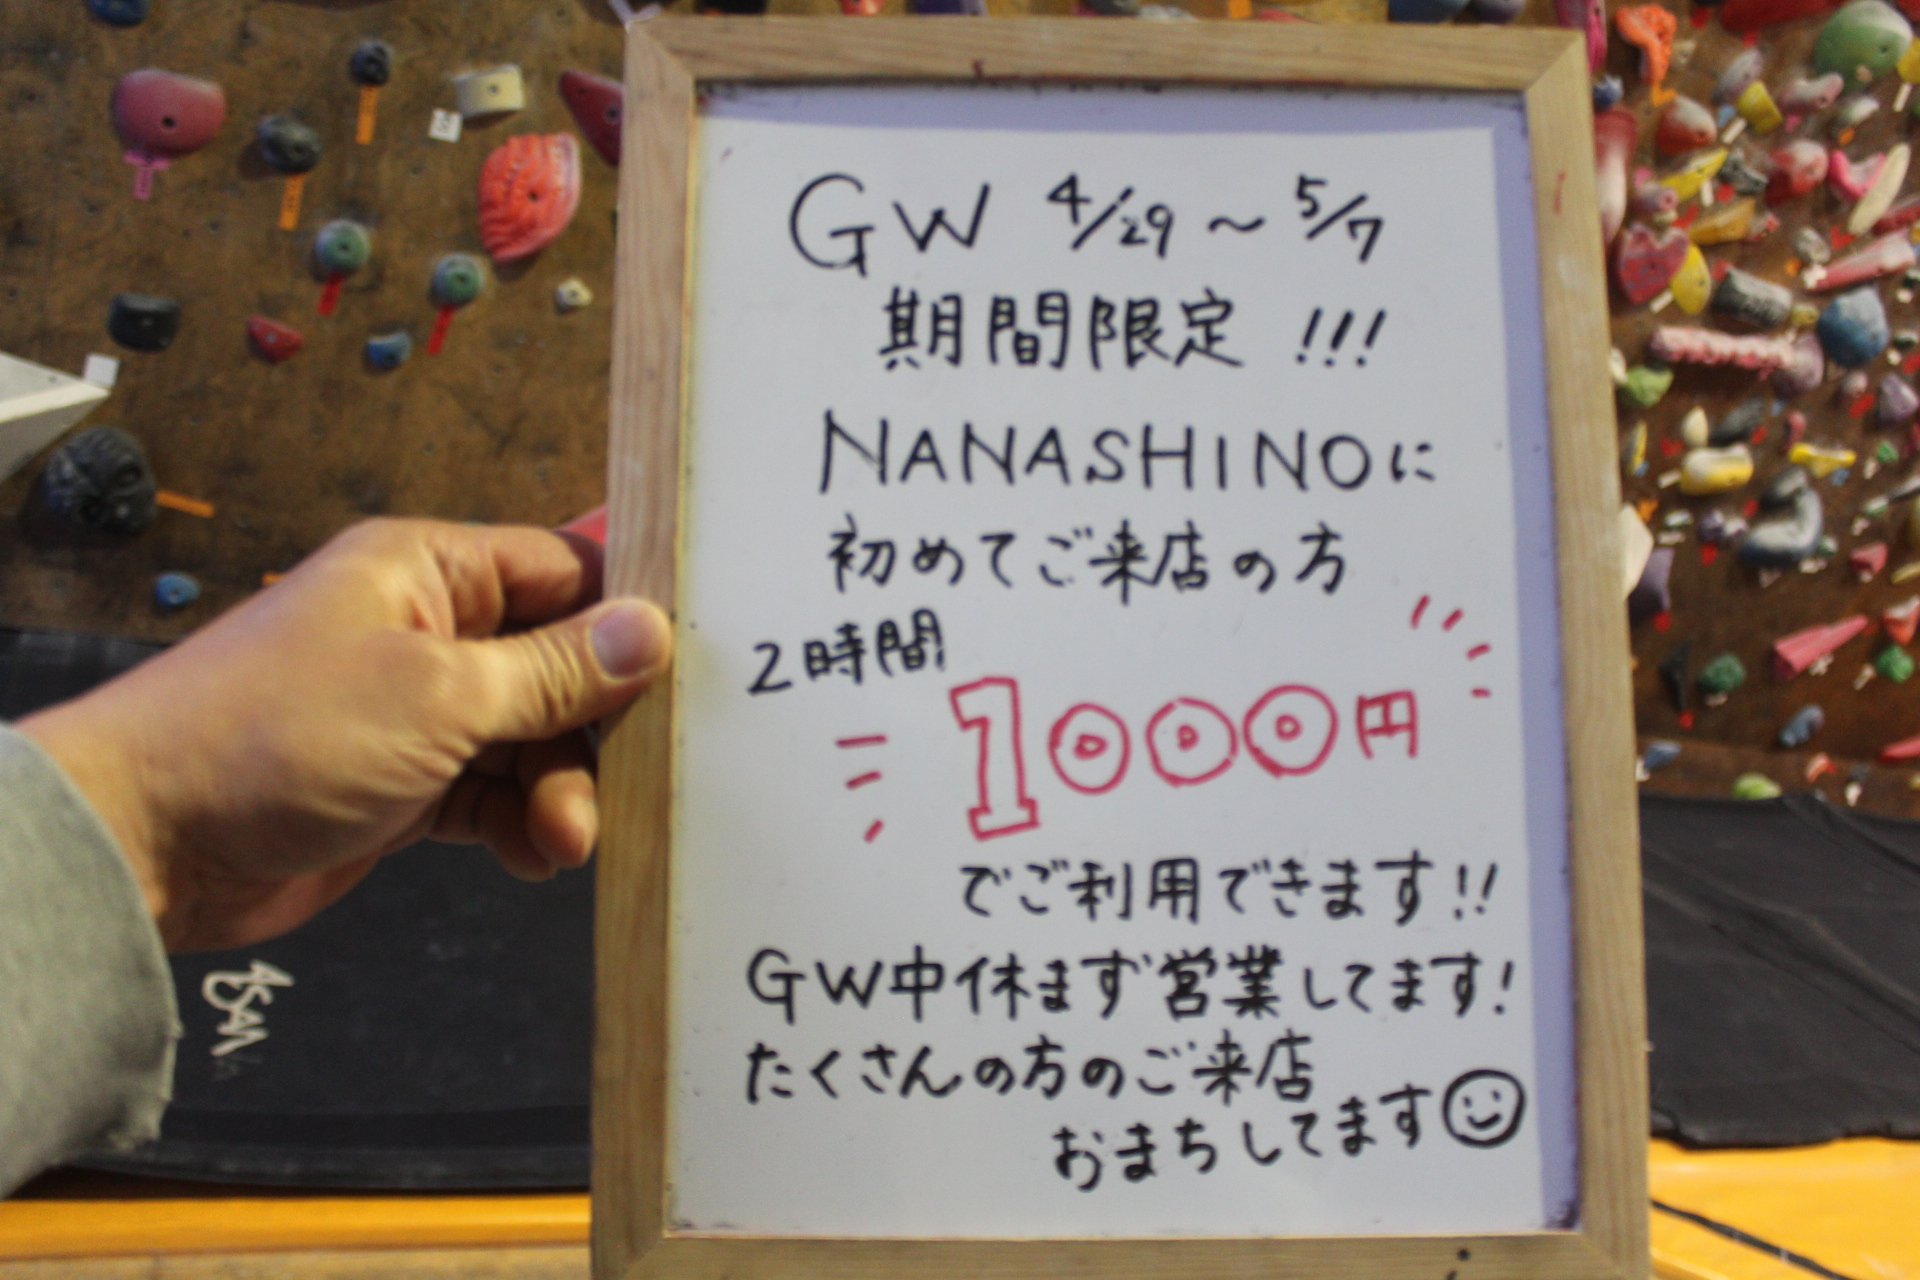 GW 4/29〜5/7
期間限定 !!!
NANASHINOに
初めてご来店の方
2時間
1000円
でご利用できます!!
GW中休まず営業してます!
たくさんの方のご来店
おまちしてます